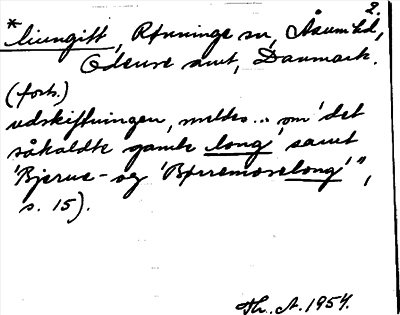 2.
*liungift, Rønninge sn, Åsum hd,
Odense amt, Danmark.
(forts.)
udskiftningen, meltes... om 'det
såkaldte gamle long' samt
'Bjerue- og 'Børremoselong'",
s. 15).
Th. A. 1954.